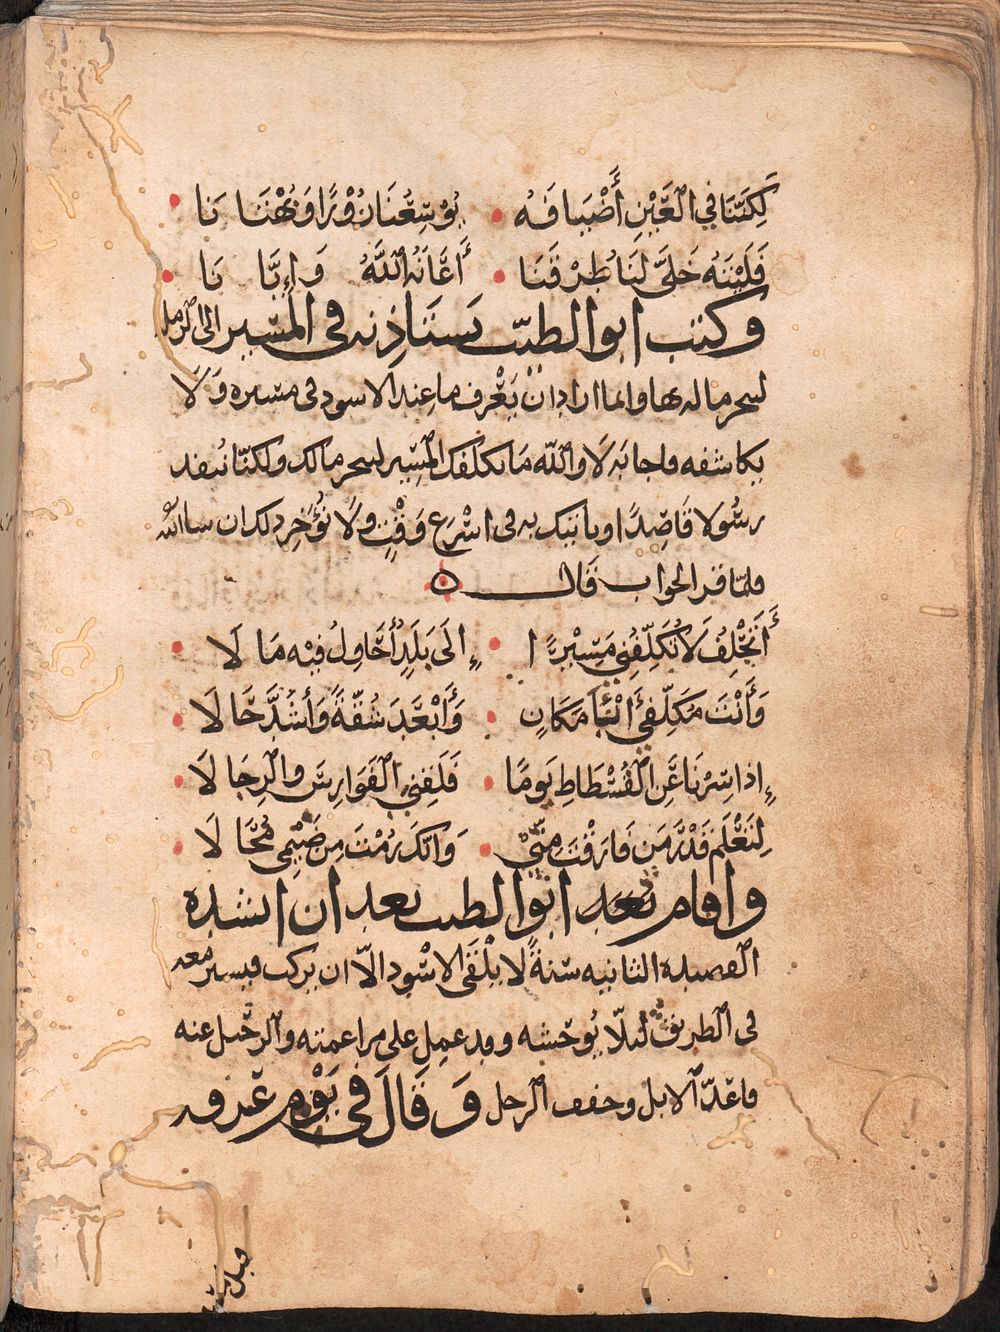 لَكِنَّنَا فِي الْعَيْنِ أَضْيَافَهُ • يُوسِعُنَا زُورًا وَبُهْتَانَا •
فَلَيْتَهُ خَلَّى لَنَا طُرْقَنَا • أَعَانَهُ اللَّهُ وَإِيَّانَا •
وكتب ابو الطيّب يستاذنه في المسير الى الرمله
ليتنجز مالا له بها وانما اراد ان يَعْرف ما عند الاسود في مسيره ولا
يكاشفه فاجابه لا والله ما نكلفك المسير لتنجز مالك ولكنّا ننفذ
رسُولا قاصِدًا اوياتيك به في اسْرَع وَقْتٍ ولا نُؤخِر ذلك ان شا الله
فلمّا قرا الجواب قال
أَتَحْلِفُ لَا تُكَلِّفُنِي مَسِيْرًا • إِلَى بَلَدٍ أُحَاوِلُ فِيْهِ مَالَا •
وَأَنْتَ مُكَلِّفِي أَنْبَا مَكَانٍ • وَأَبْعَدَ شُقَّةً وَأشُدَّ حَالَا •
إِذا سِرْنَا عَنِ الْفُسْطَاطِ يَومًا • فَلَقِّنِي الْفَوَارِسَ والرِجَالَا •
لِتَعْلَمَ قَدْرَ مَن فَارَقْتَ مِنّي • وَانَّكَ رُمْتَ مِن ضَيْمِي مُحَالَا •
واقام بعد ابو الطيب بعد ان انشده
القصيدة الثانيه سَنةً لا يلْقَى الاسْود الّا ان يركب فيسير معه
في الطريق لئلّا يُوحشه وقد عمِل على مراغمته والرحيل عنه
فاعدّ الابل وخفف الرحل وَقَالَ في يَوْم عرفه